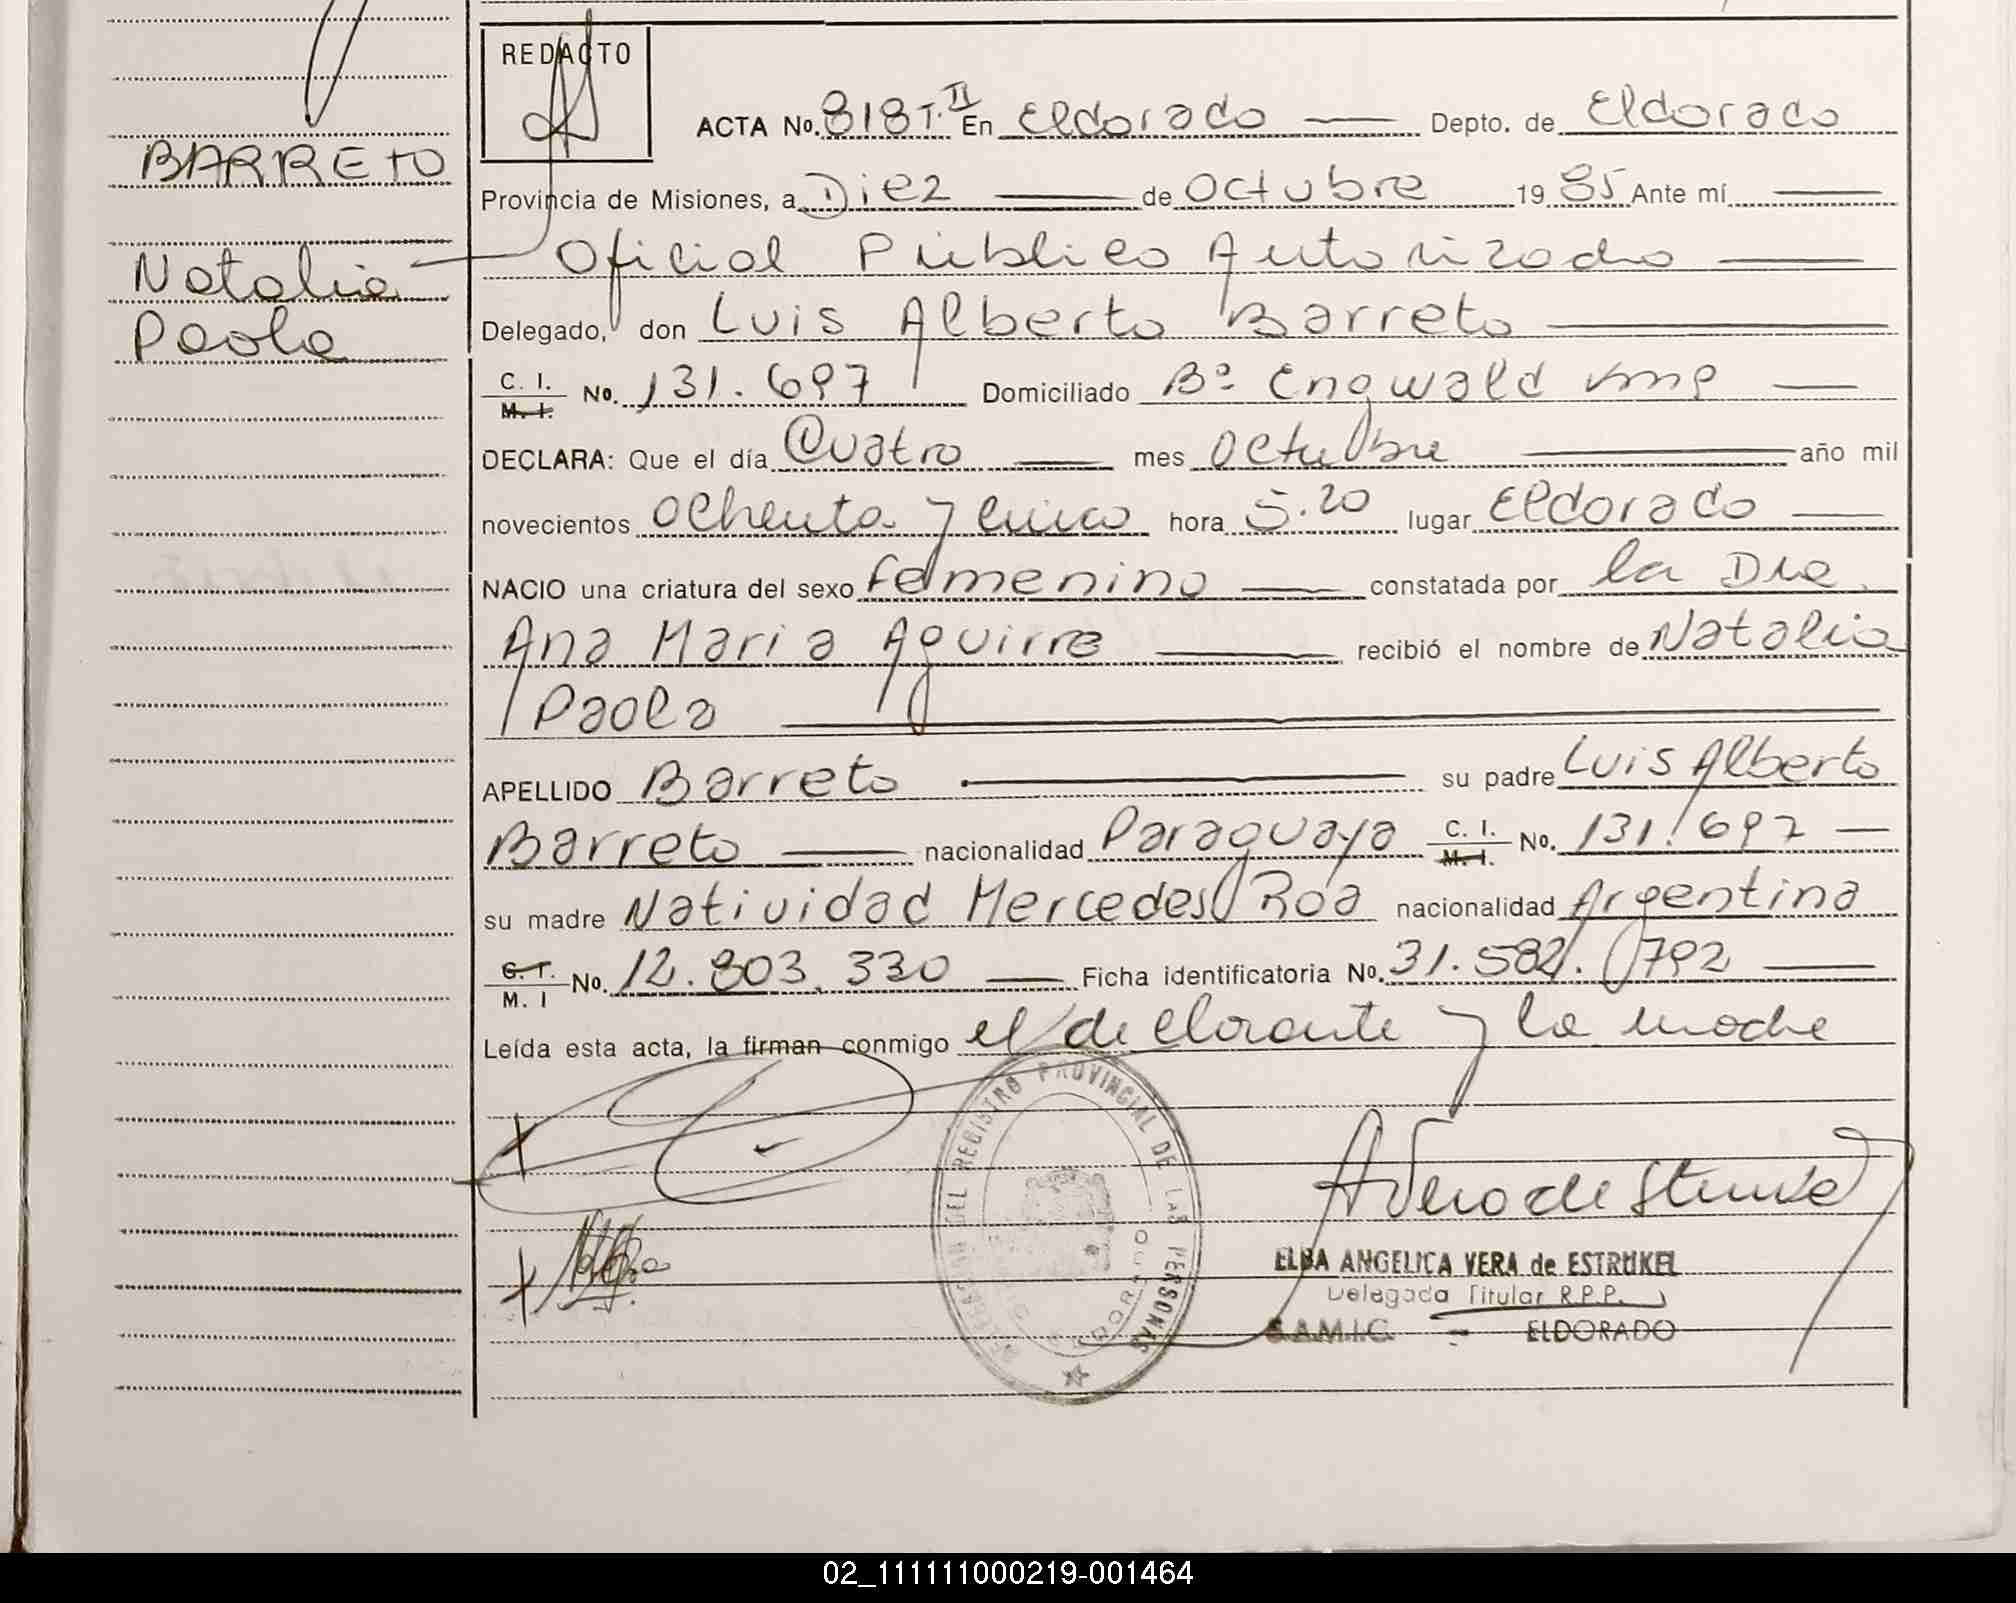 REDACTO
ACTA No. 818 T. II En Eldorado Depto. de Eldorado
BARRETO
Provincia de Misiones, a Diez de Octubre 1985 Ante mí
Natalia
Paola
Oficial Público Autorizado
Delegado, don Luis Alberto Barreto
C. I.
M. I.
No. 131.697 Domiciliado Bº
DECLARA: Que el día Cuatro mes Octubre año mil
novecientos Ochenta y cinco hora 5.20 lugar Eldorado
NACIO una criatura del sexo femenino constatada por la Dra.
Ana Maria Aguirre recibió el nombre de Natalia
Paola
APELLIDO Barreto su padre Luis Alberto
Barreto nacionalidad Paraguaya C. I. M. I. No. 131.697
su madre Natividad Mercedes Roa nacionalidad Argentina
C. I.
M. I
No. 12.803.330 Ficha identificatoria No. 31.582.792
Leída esta acta, la firman conmigo el declarante y la madre
DELEGACION DEL REGISTRO PROVINCIAL DE LAS PERSONAS
ELDORADO
ELBA ANGELICA VERA de ESTRUKEL
Delegada Titular R.P.P.
S.A.M.I.C. - ELDORADO
02_111111000219-001464